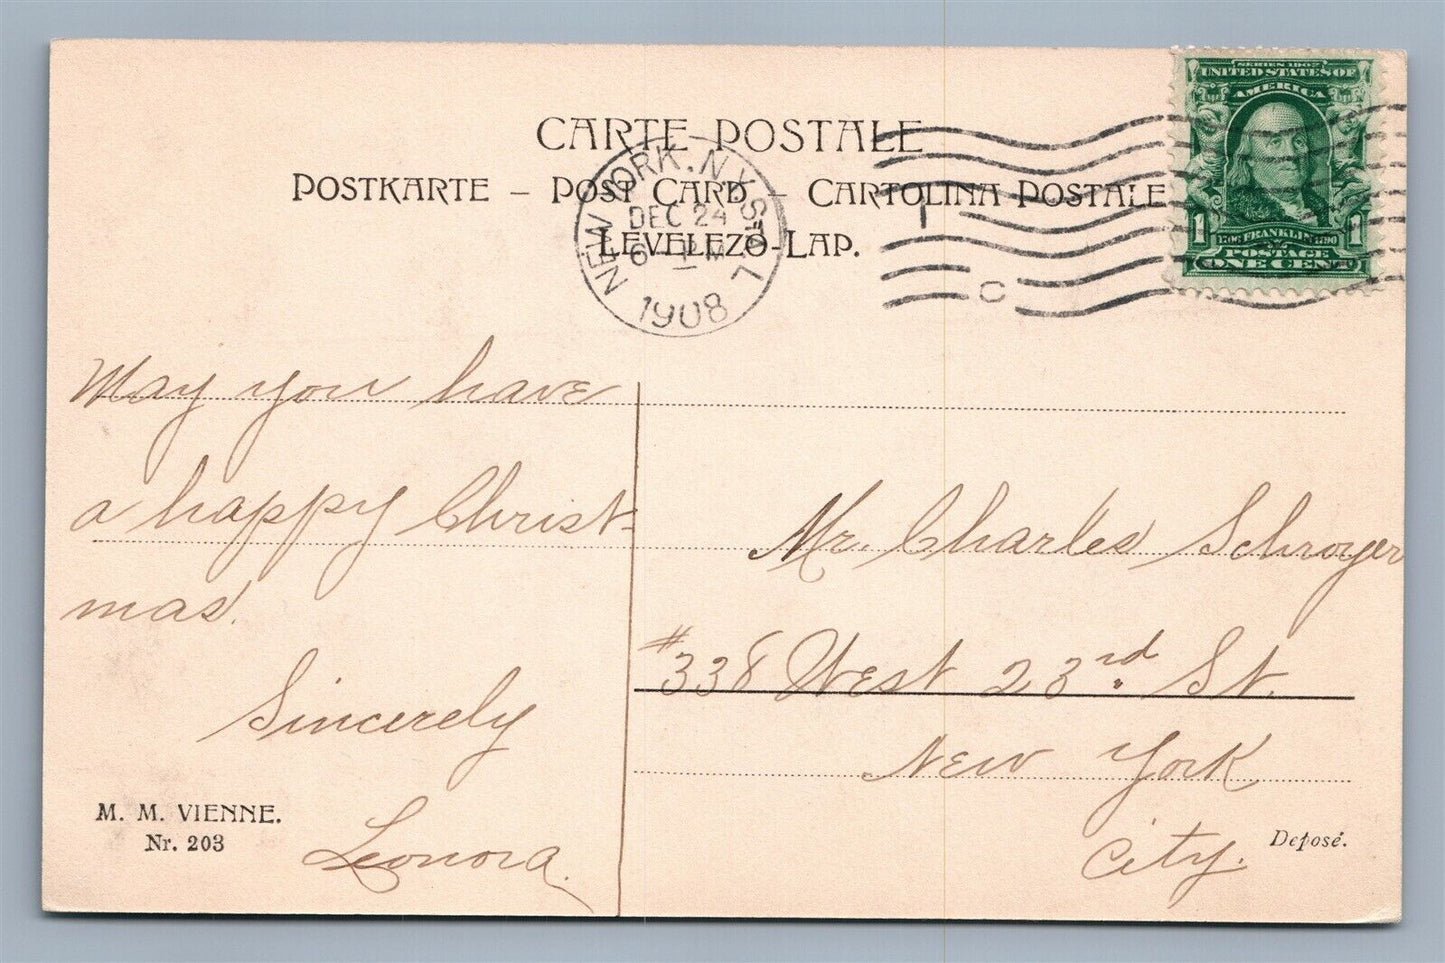 CARTE POSTALE
POSTKARTE – POST CARD – CARTOLINA POSTALE
LEVELEZŐ-LAP.
NEW YORK, N.Y. STA. L
DEC 24
6 - PM
1908
C
SERIES 1902
UNITED STATES OF
AMERICA
1 FRANKLIN 1
POSTAGE
ONE CENT
May you have
a happy Christ-
mas.
Sincerely
Leonora.
Mr. Charles Schroyer
#338 West 23rd St.
New York
City.
M. M. VIENNE.
Nr. 203
Deposé.